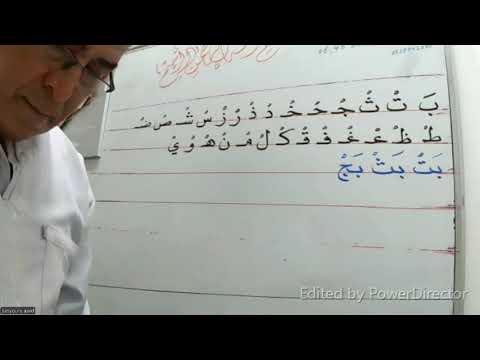 بَـ تْ ثْ جْ حْ خْ دْ ذْ رْ زْ سْ شْ صْ ضْ
طْ ظْ عْ غْ فْ قْ كْ لْ مْ نْ هْ وْ يْ
بَتْ بَثْ بَجْ
Edited by PowerDirector